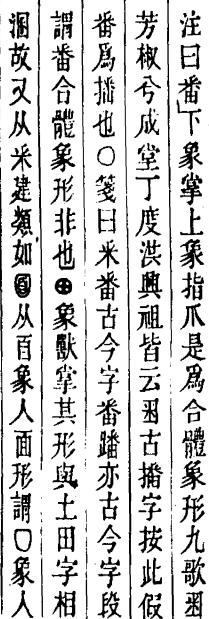 注曰番下象掌上象指爪是爲合體象形九歌𢿥
芳椒兮成堂丁度洪興祖皆云𢿥古播字按此假
番爲播也〇箋曰釆番古今字番蹯亦古今字段
謂番合體象形非也⊕象獸掌其形與土田字相
溷故又从釆建類如𦣻从百象人面形謂囗象人